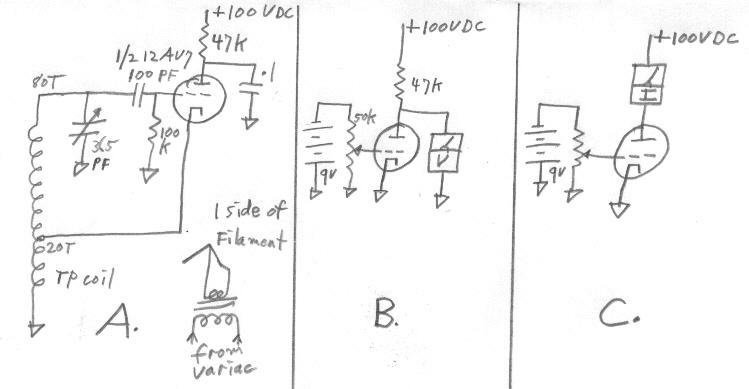 +100VDC
47K
1/2 12AU7
100PF
.1
80T
365
PF
100
K
20T
TP coil
1 side of
Filament
A.
from
variac
+100VDC
47K
50K
9V
V
B.
+100VDC
I
9V
C.